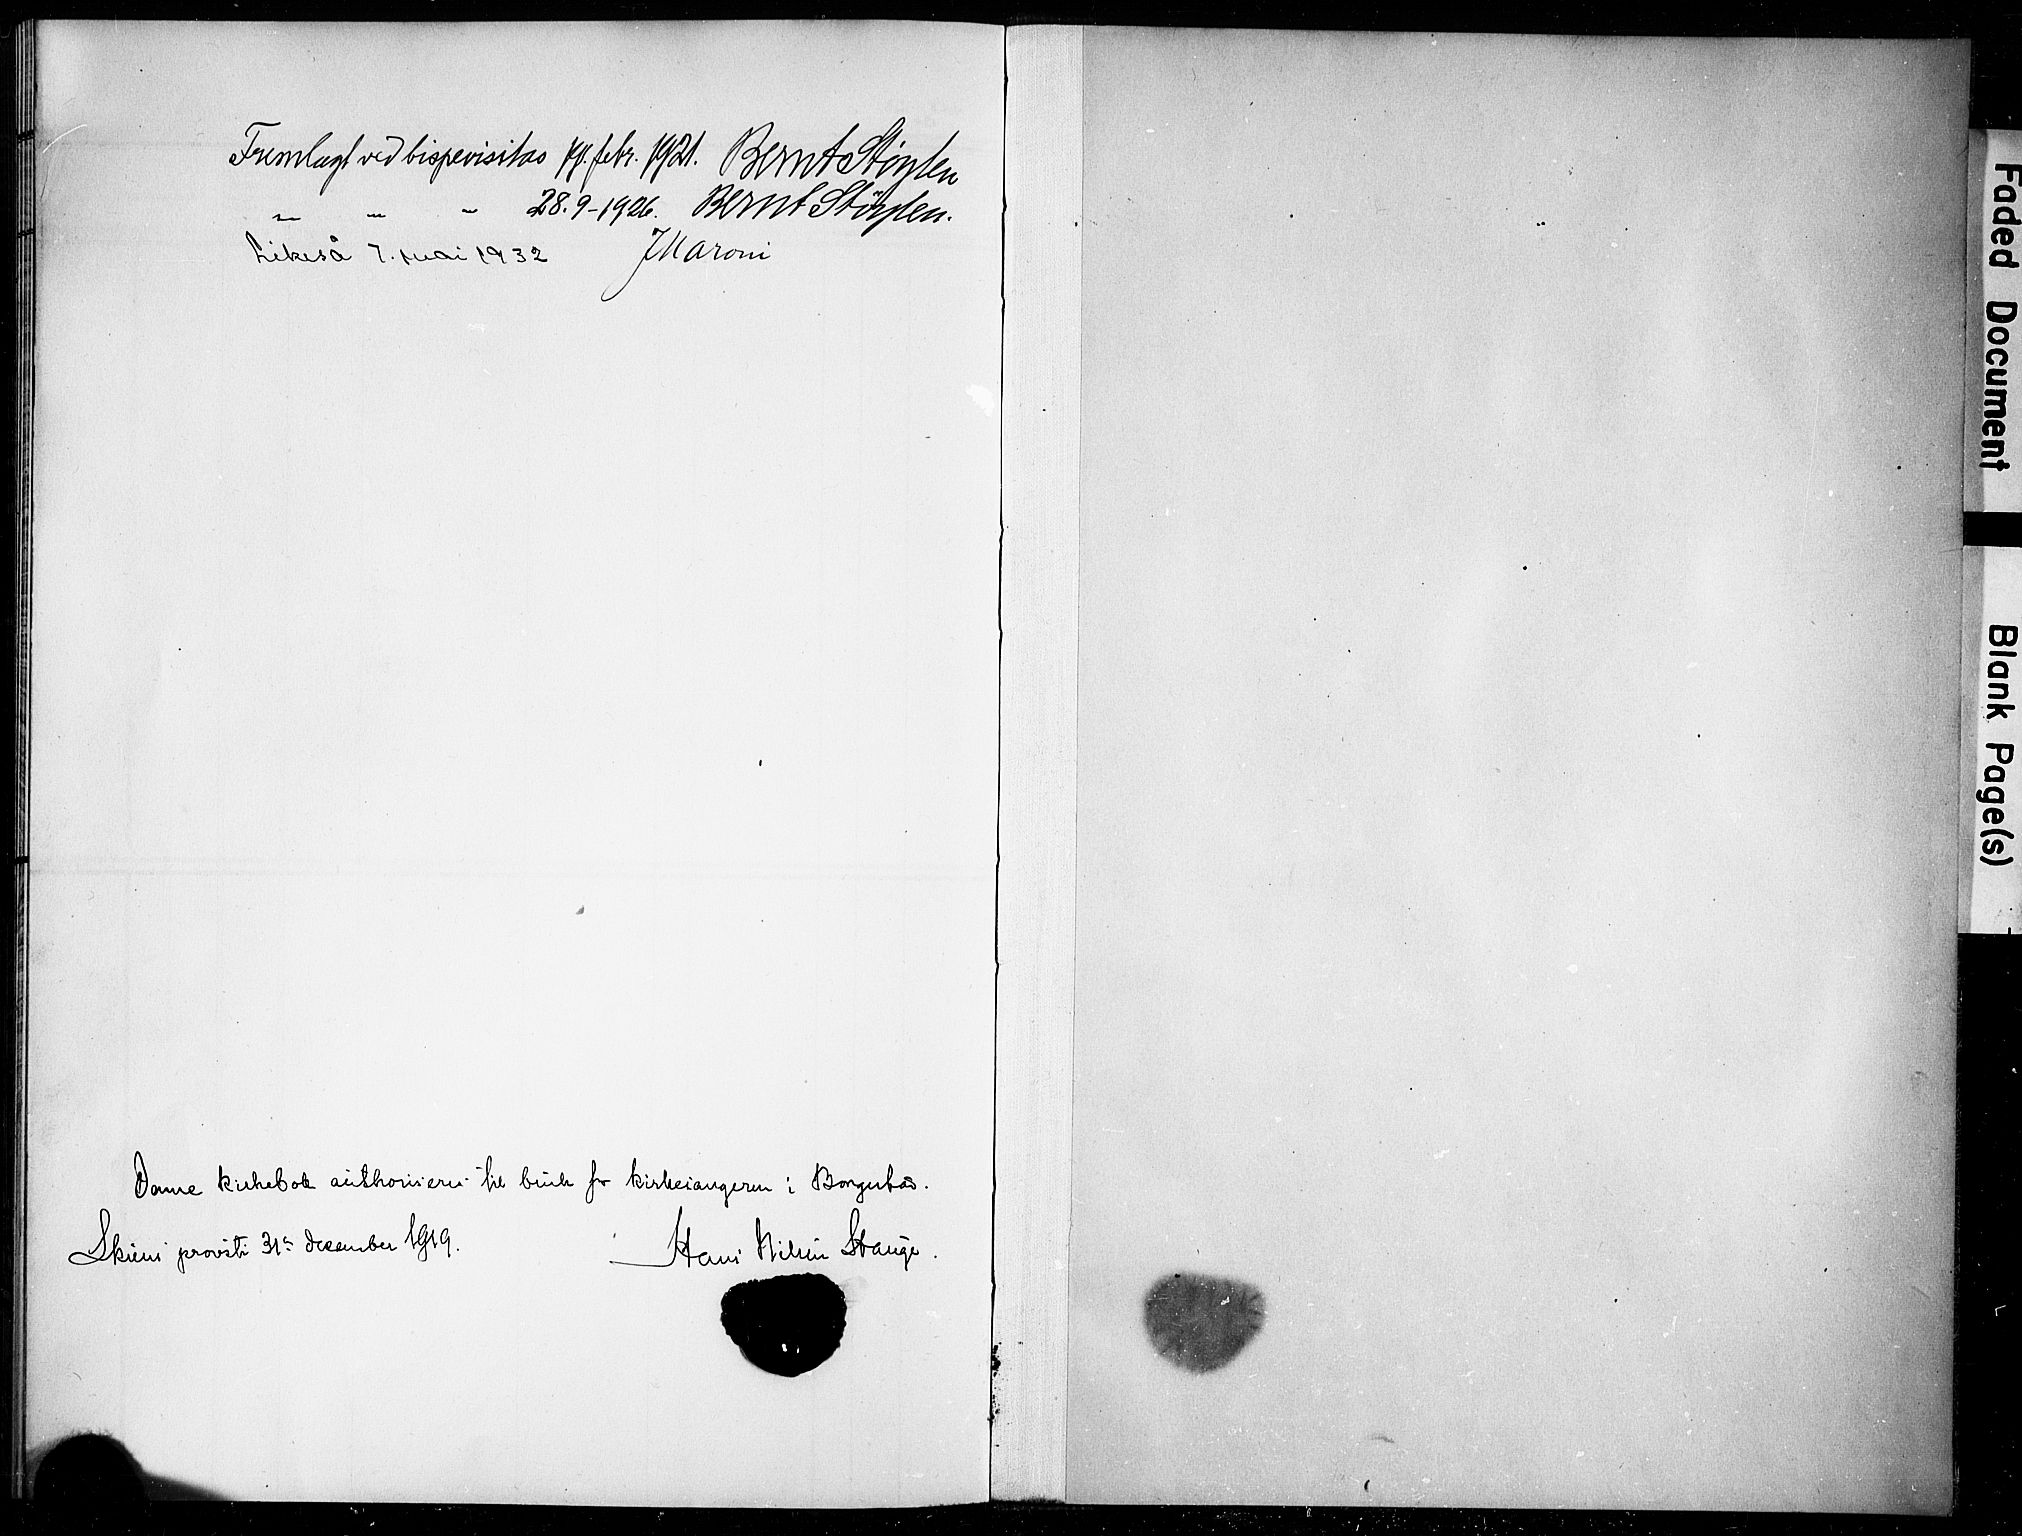 Fremlagt ved bispevisitas 17. febr. 1921. Bernt Støylen
„ „ „ 28.9-1926. Bernt Støylen.
Likeså 7. mai 1932 J Maroni
Denne kirkebok authoriseres til bruk for kirkesangeren i Borgestad.
Skiens provsti 31te december 1919. Hans Nilsen Stange.
Faded Document
Blank Page(s)